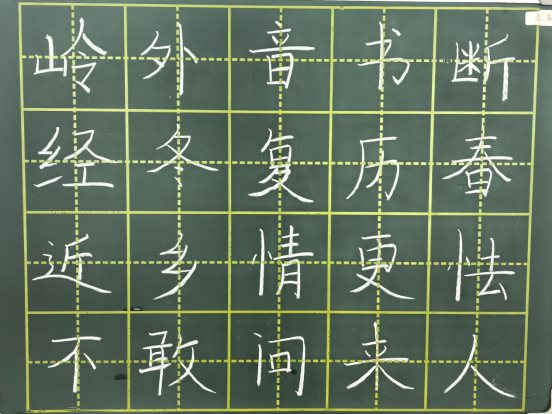 岭外音书断
经冬复历春
近乡情更怯
不敢问来人